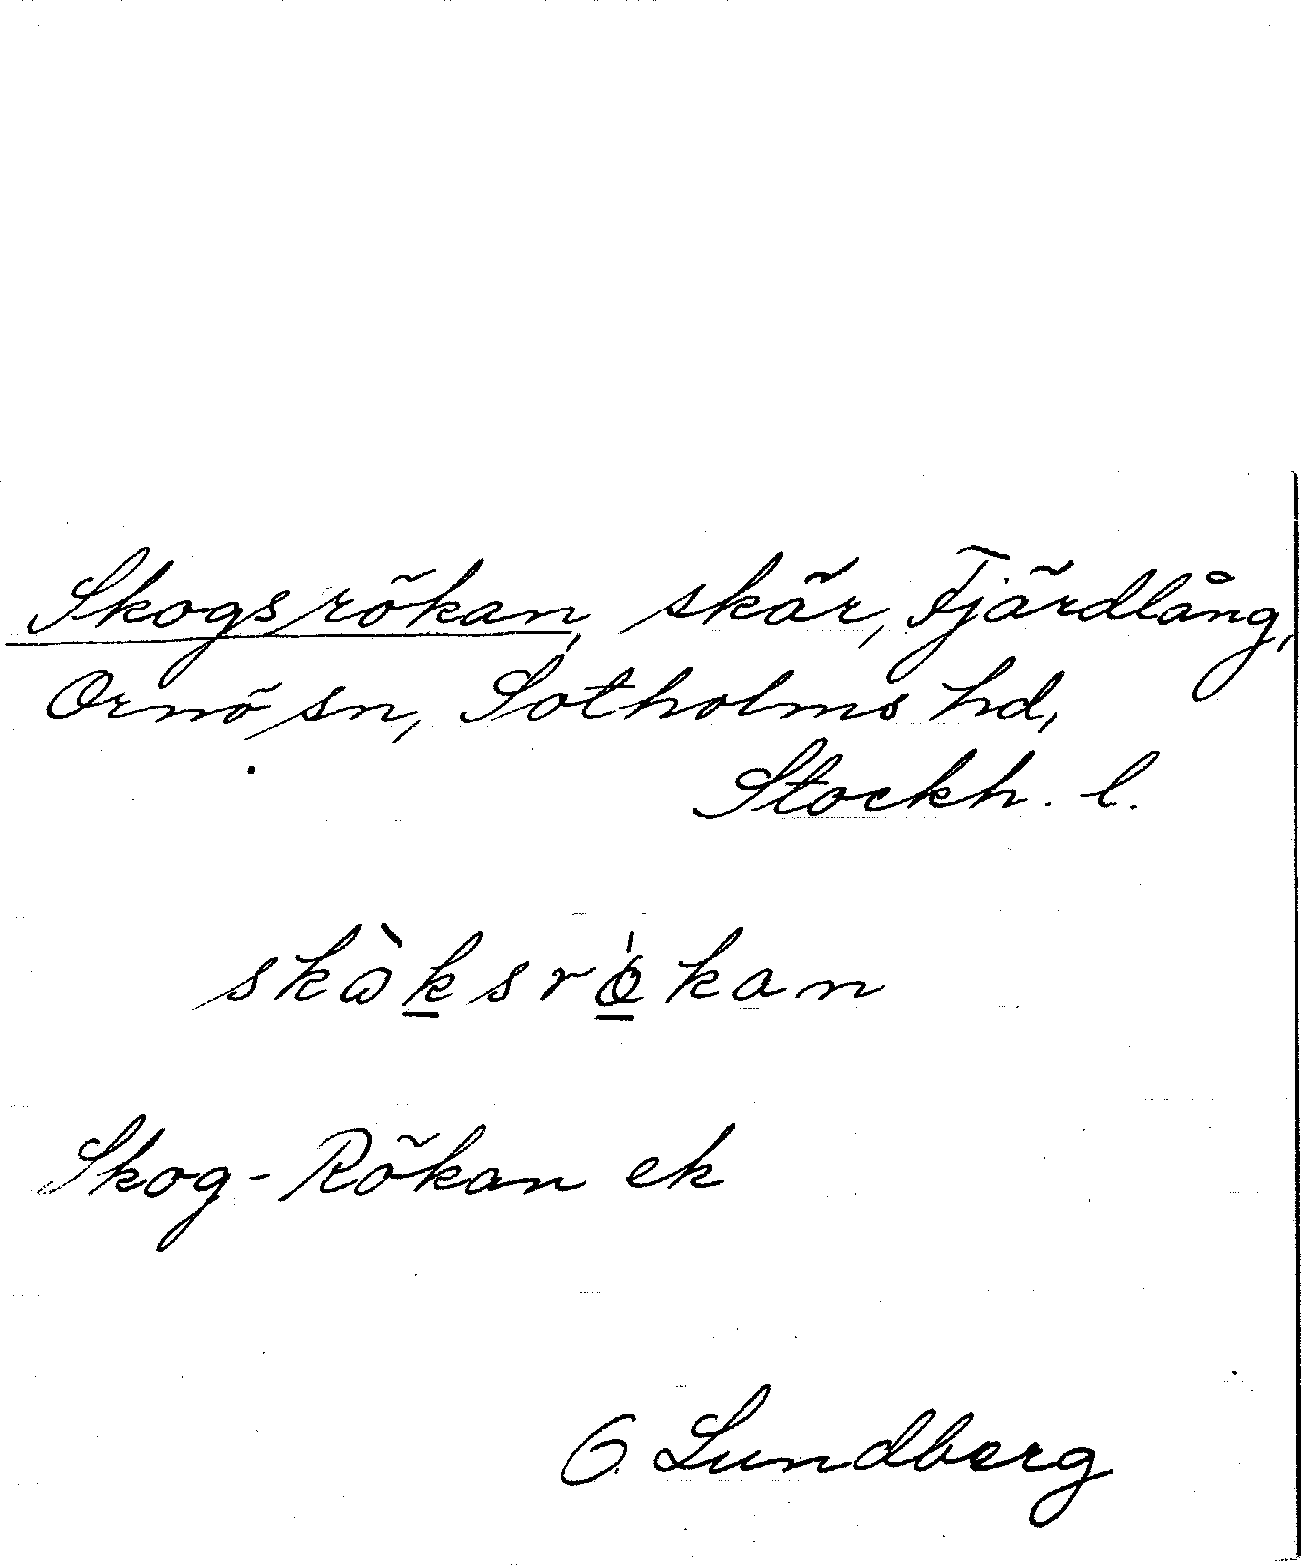 Skogsrökan, skär, Fjärdlång,
Ornö sn, Sotholms hd,
Stockh. l.
Skog-Rökan ek
O. Lundberg